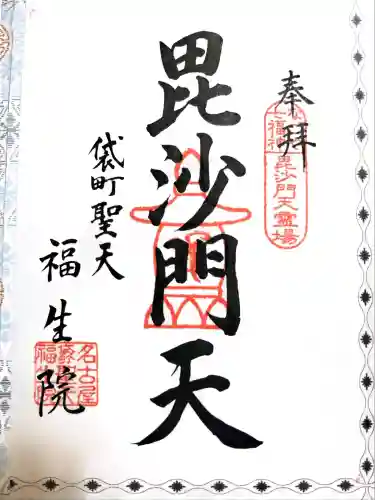 奉拝
七福神毘沙門天霊場
毘沙門天
袋町聖天
福生院
名古屋
袋町
福生院